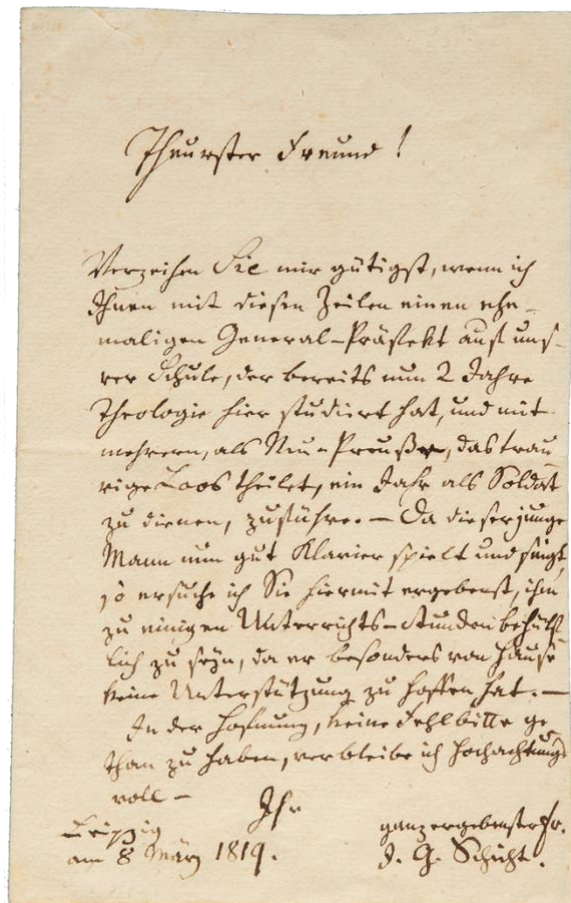 Theurster Freund!
Verzeihen Sie mir gütigst, wenn ich
Ihnen mit diesen Zeilen einen ehe-
maligen General-Präfekt aus uns-
rer Schule, der bereits nun 2 Jahre
Theologie hier studiert hat, und mit
mehrern, als Neu-Preuße, das trau
rige Loos theilet, ein Jahr als Soldat
zu dienen, zuführe. — Da dieser junge
Mann nun gut Klavier spielt und singt,
so ersuche ich Sie hiermit ergebenst, ihm
zu einigen Unterrichts-Stunden behülf-
lich zu seyn, da er besonders von Hause
keine Unterstützung zu hoffen hat. —
In der Hofnung, keine Fehlbitte ge
than zu haben, verbleibe ich hochachtungs
voll —
Ihr
ganz ergebenster Fr.
Leipzig
am 8 März 1819.
J. G. Schicht.